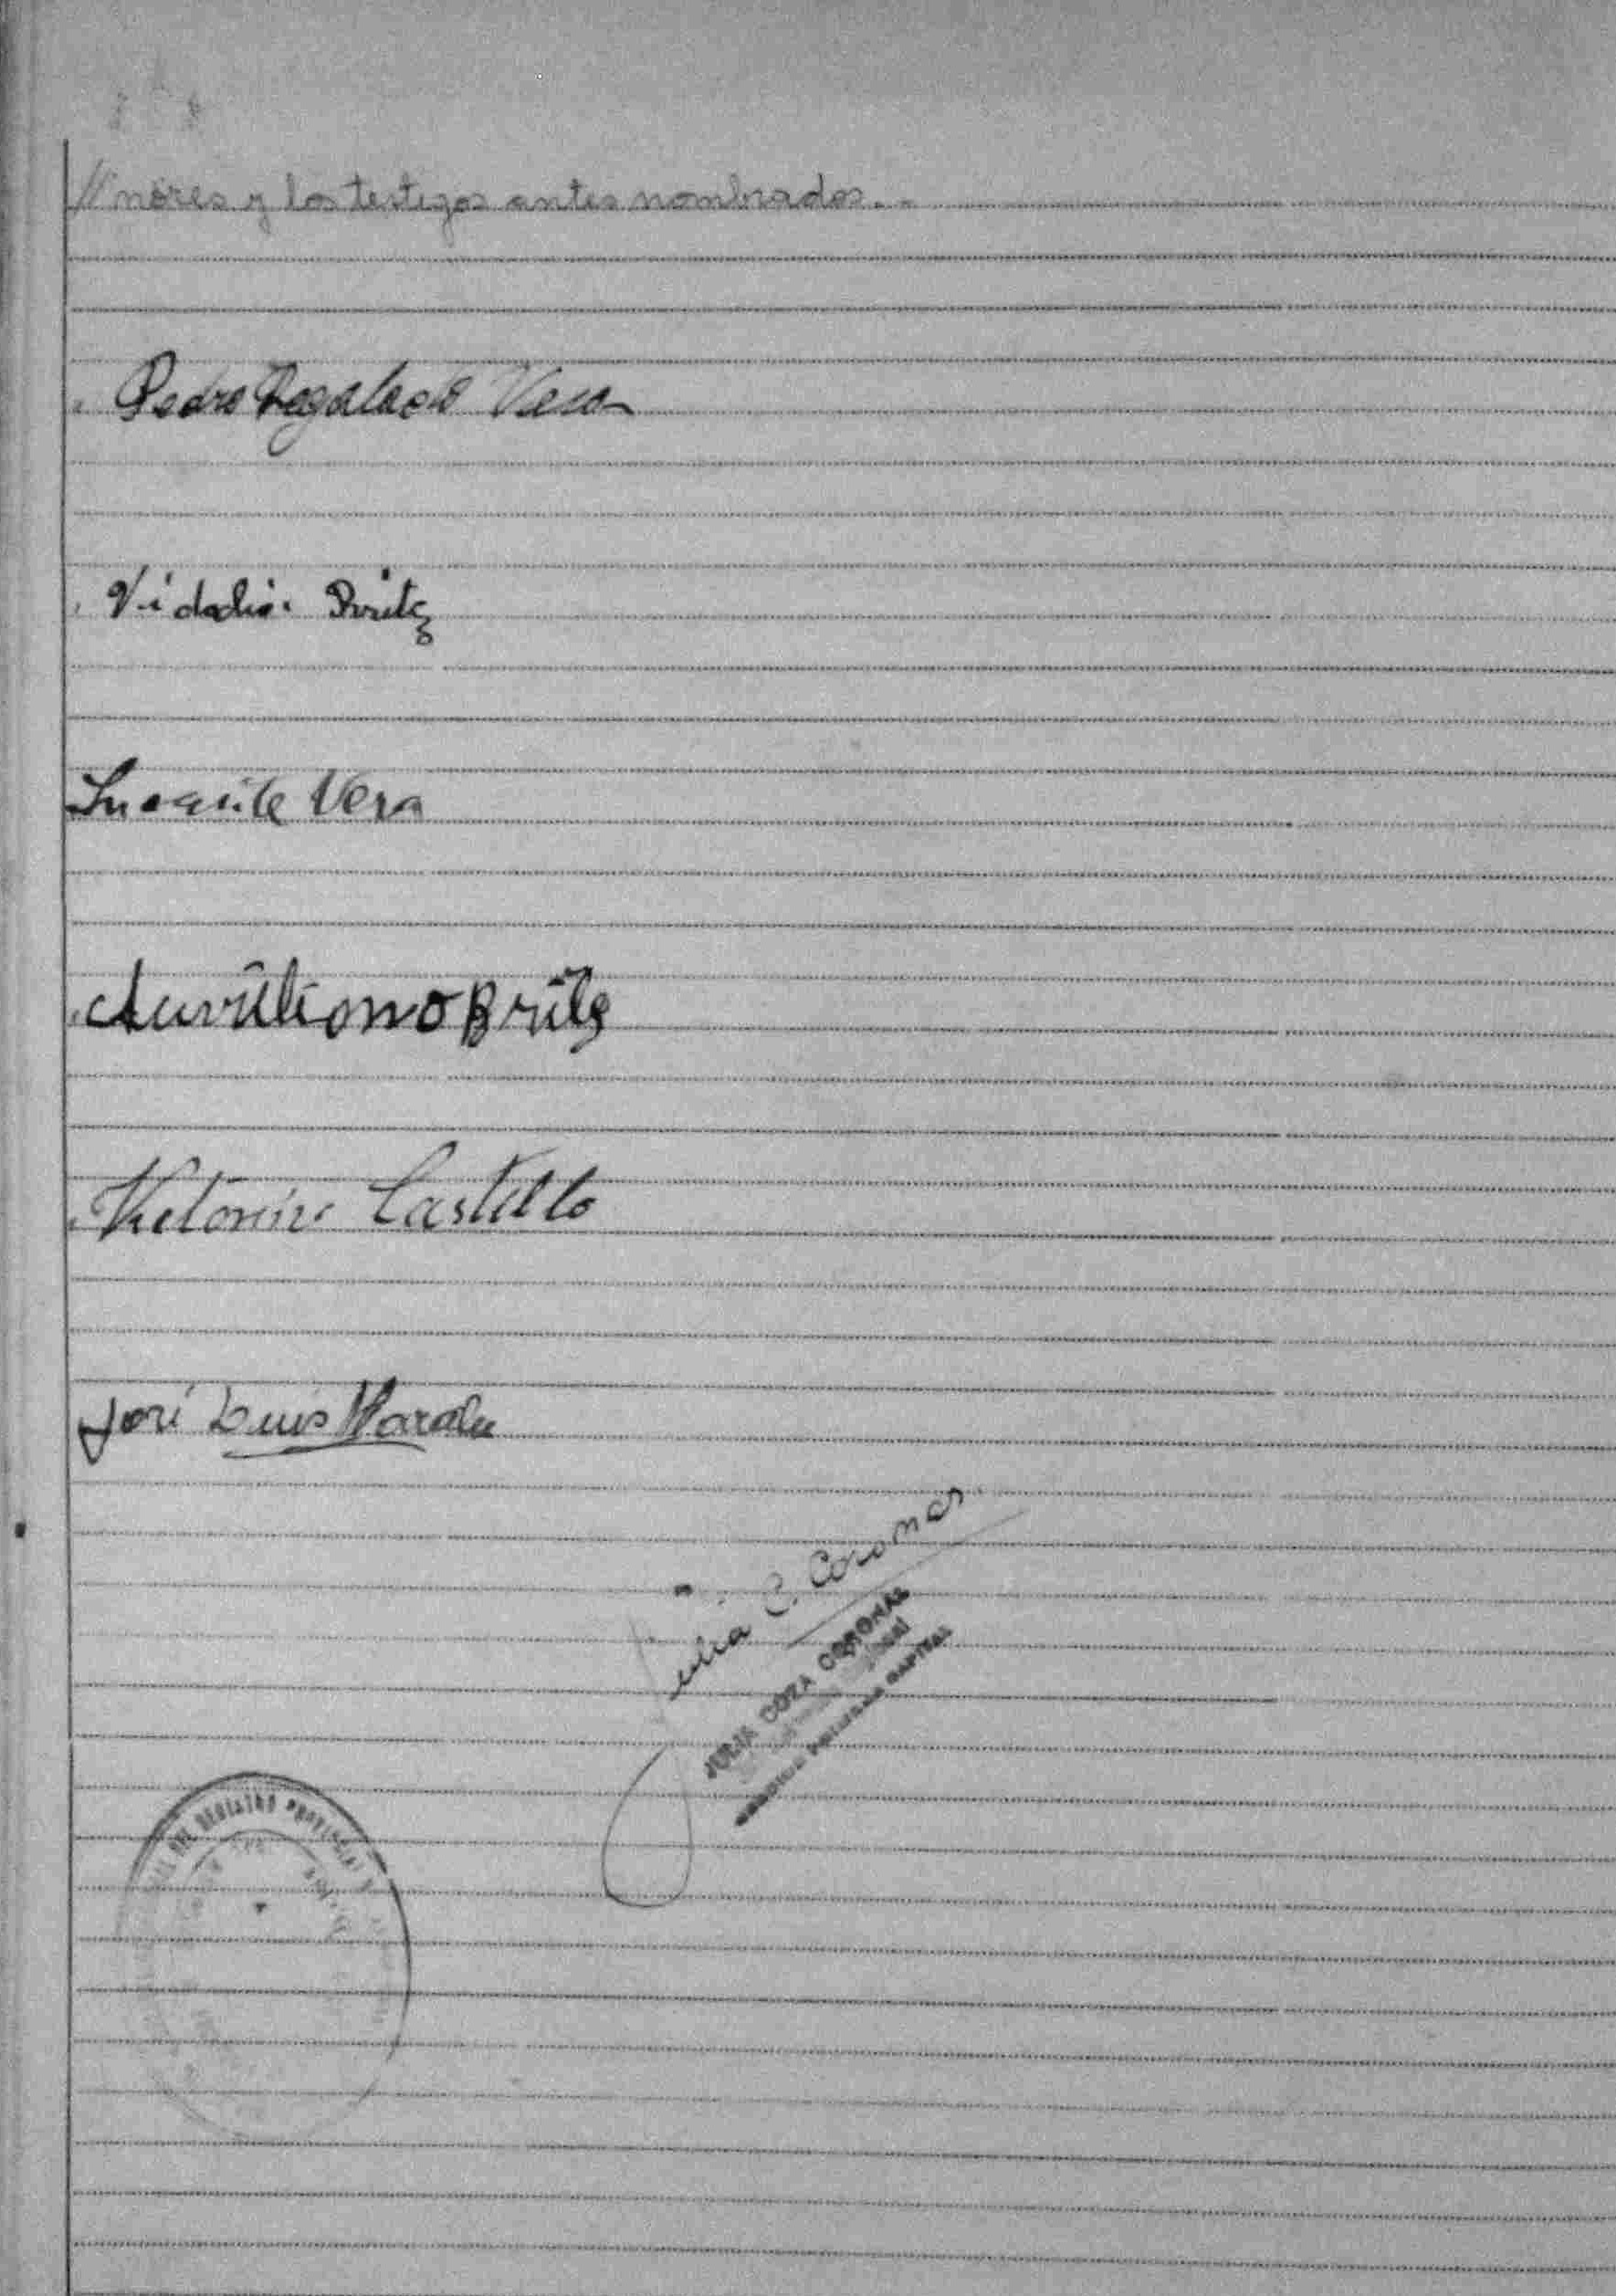 // nores y los testigos antes nombrados. -
Pedro Regalado Vera
Vidalia Britez
Inocente Vera
Aureliano Britez
Victorino Castillo
José Luis
Julia C. Coronal
JULIA COZA CORONAL
CAPITAL
DEL REGISTRO PROVINCIAL